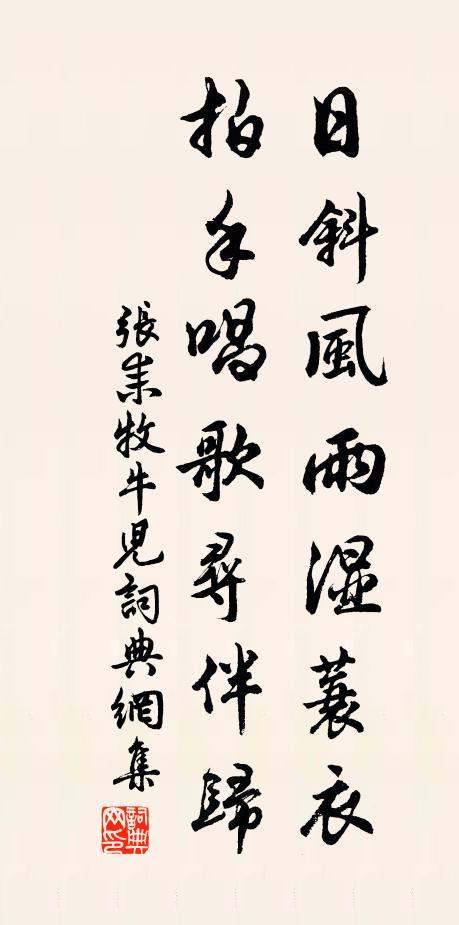 日斜風雨湿蓑衣
拍手唱歌尋伴歸
張耒牧牛児詞典網集
詞典网印